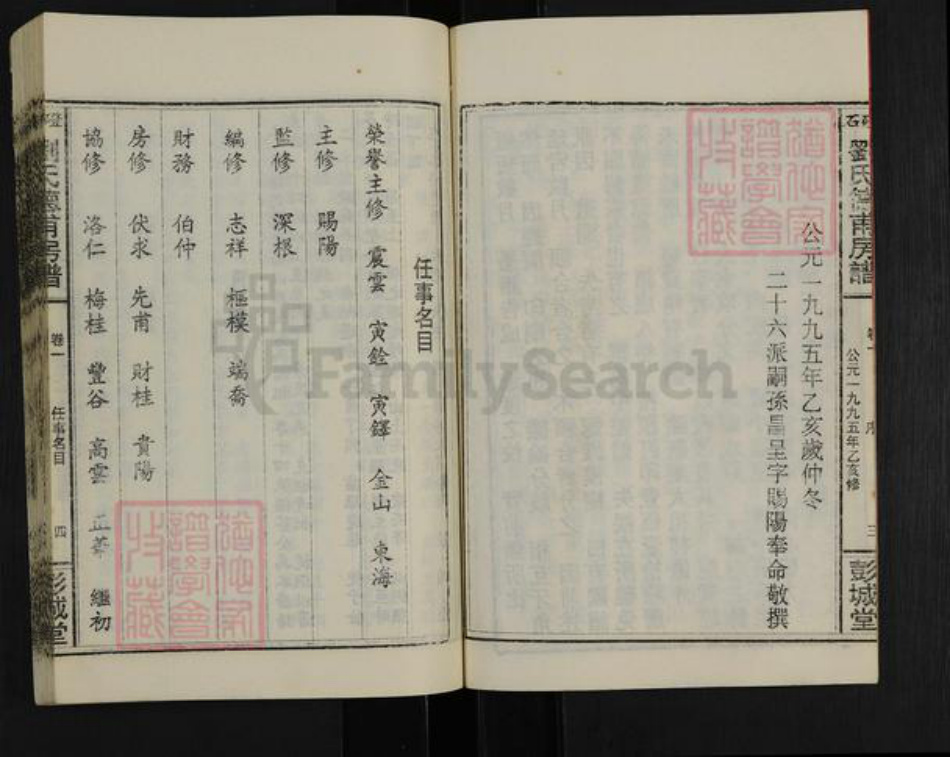 劉氏德甫房譜
卷一
序
三
公元一九九五年乙亥修
彭城堂
公元一九九五年乙亥歲仲冬
二十六派嗣孫昌呈字賜陽奉命敬撰
任事名目
榮譽主修 震雲 寅銓 寅鐸 金山 東海
主修 賜陽
監修 深根
編修 志祥 樞模 端喬
財務 伯仲
房修 伏求 先甫 財桂 貴陽
協修 洛仁 梅桂 豐谷 高雲 正華 繼初
劉氏德甫房譜
卷一
任事名目
四
彭城堂
FamilySearch
譜學會
收藏
譜學會
收藏